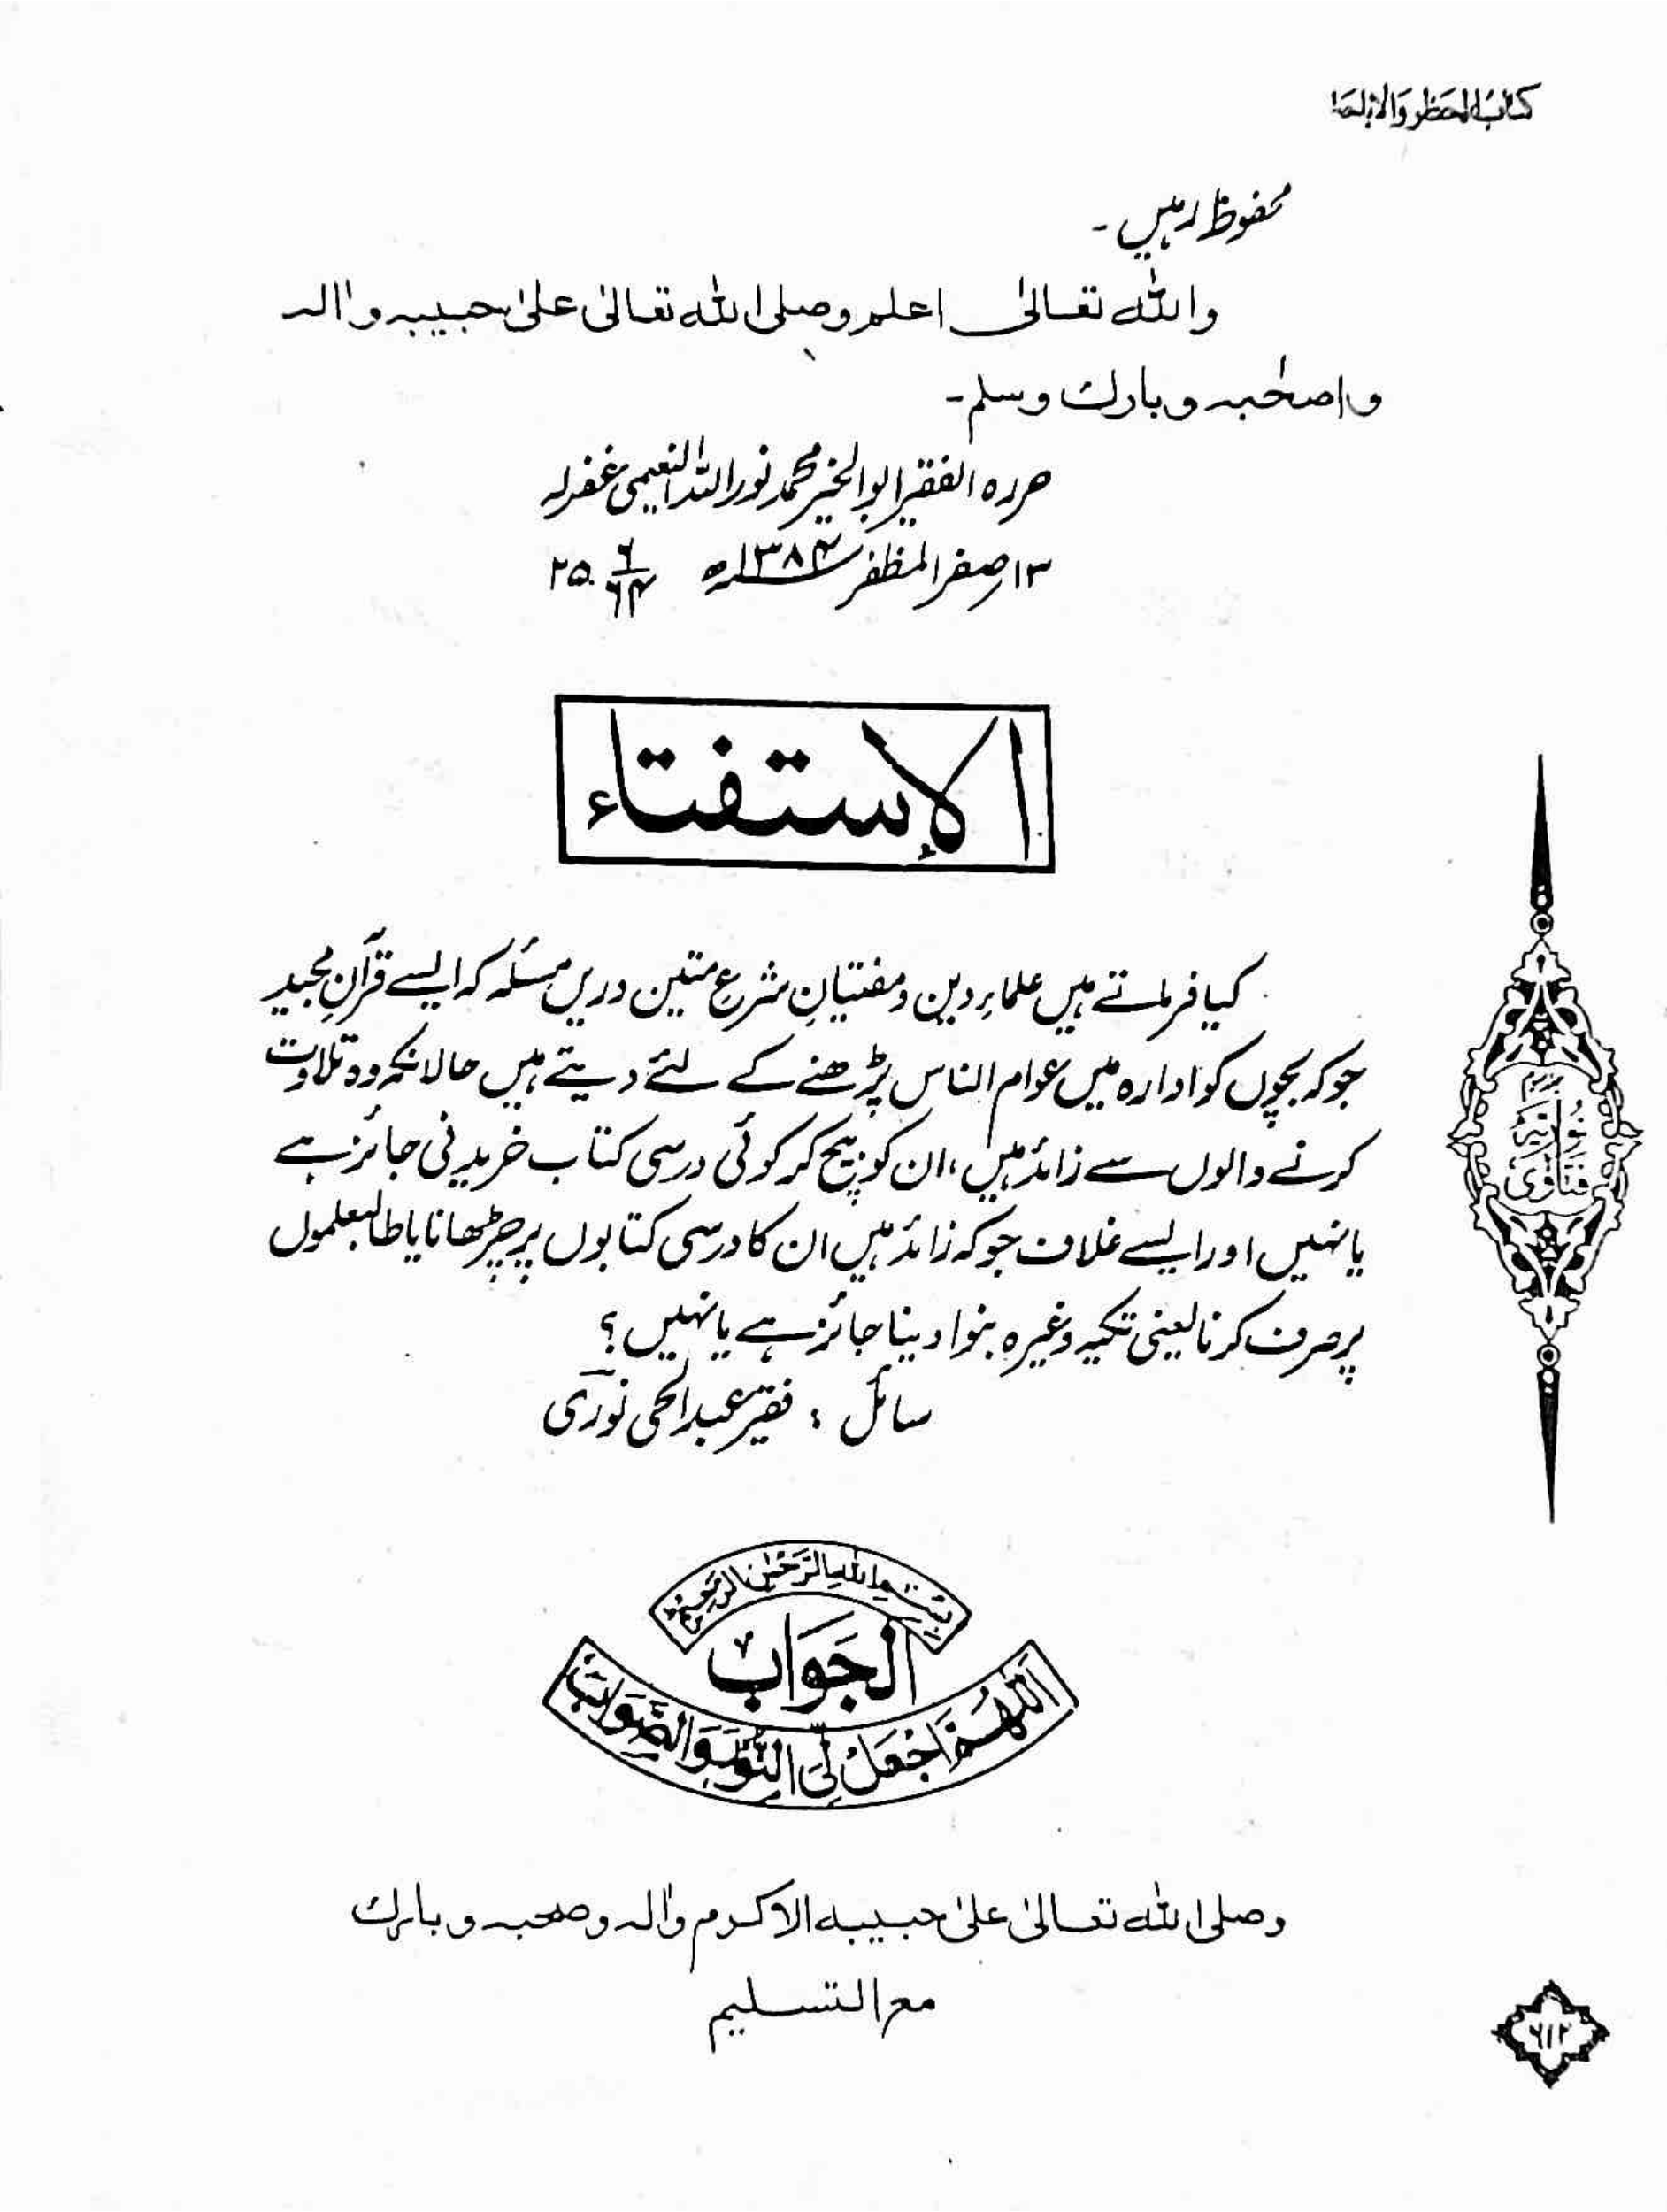 کتاب الحظر والاباحۃ
محفوظ رہیں۔
واللہ تعالیٰ اعلم وصلی اللہ تعالیٰ علیٰ حبیبہ واٰلہ
واصحٰبہ وبارک وسلم۔
حررہ الفقیر ابوالخیر محمد نور اللہ النعیمی غفرلہ
۱۳ صفر المظفر ۱۳۸۴ھ ۲۵ ۶/۶۴
الاستفتاء
کیا فرماتے ہیں علماءِ دین ومفتیانِ شرعِ متین دریں مسئلہ کہ ایسے قرآنِ مجید
جو کہ بچوں کو ادارہ میں عوام الناس پڑھنے کے لئے دیتے ہیں حالانکہ وہ تلاوت
کرنے والوں سے زائد ہیں، ان کو بیچ کر کوئی درسی کتاب خریدنی جائز ہے
یا نہیں اور ایسے غلاف جو کہ زائد ہیں ان کا درسی کتابوں پر چڑھانا یا طالبعلموں
پر صرف کرنا یعنی تکیہ وغیرہ بنوا دینا جائز ہے یا نہیں؟
سائل : فقیر عبدالحی نوری
فتاویٰ نوریہ
بسم اللہ الرحمٰن الرحیم
الجواب
اللهم اجعل لی النور والصواب
وصلی اللہ تعالیٰ علیٰ حبیبہ الاکرم واٰلہ وصحبہ وبارک
مع التسلیم
۶۱۲